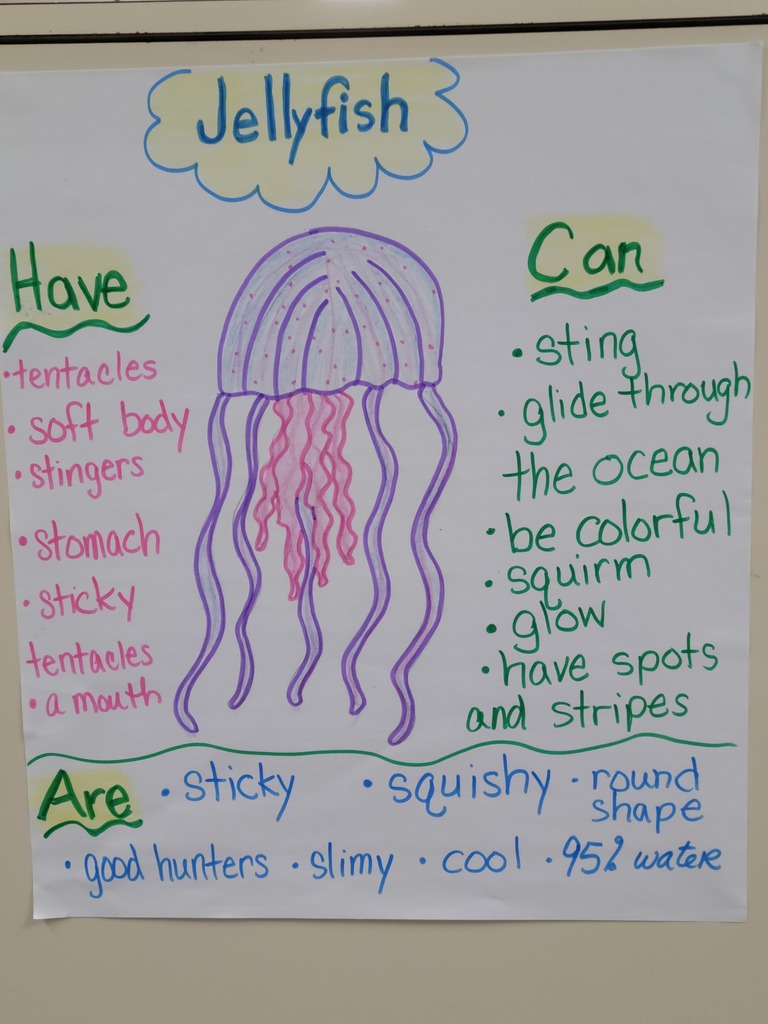 Jellyfish
Have
• tentacles
• soft body
• stingers
• stomach
• sticky
tentacles
• a mouth
Can
• sting
• glide through
the ocean
• be colorful
• squirm
• glow
• have spots
and stripes
Are • sticky • squishy • round
shape
• good hunters • slimy • cool • 95% water